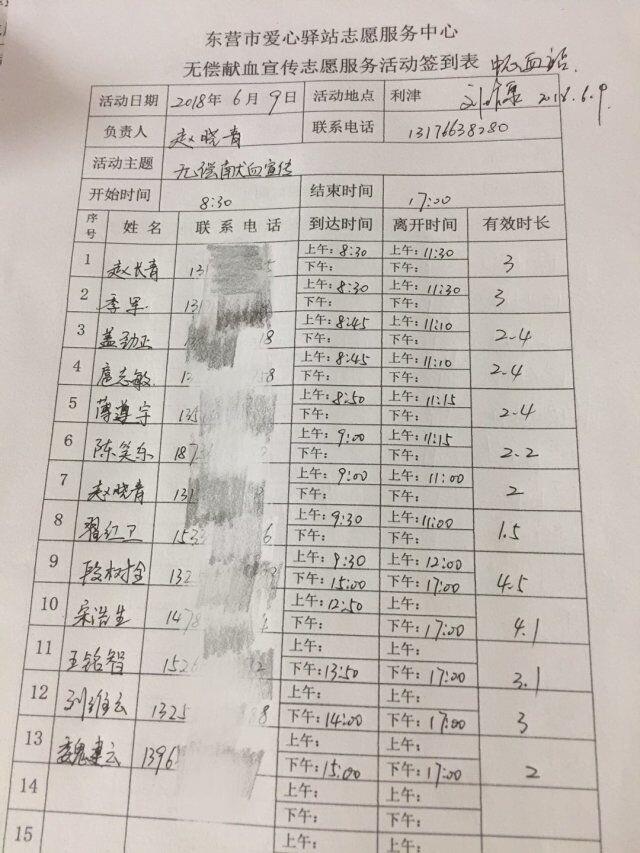 东营市爱心驿站志愿服务中心
无偿献血宣传志愿服务活动签到表 中心血站
2018.6.9.
活动日期 2018年6月9日 活动地点 利津
负责人 赵晓青 联系电话 13176638280
活动主题 无偿献血宣传
开始时间 8:30 结束时间 17:00
序号 姓名 联系电话 到达时间 离开时间 有效时长
1 赵长青 上午:8:30 上午:11:30 3
下午: 下午:
2 季军 上午:8:30 上午:11:30 3
下午: 下午:
3 盖劲正 上午:8:45 上午:11:10 2.4
下午: 下午:
4 扈志敏 上午:8:45 上午:11:10 2.4
下午: 下午:
5 薄尊宇 上午:8:50 上午:11:15 2.4
下午: 下午:
6 陈笑乐 上午:9:00 上午:11:15 2.2
下午: 下午:
7 赵晓青 上午:9:00 上午:11:00 2
下午: 下午:
8 翟红卫 上午:9:30 上午:11:00 1.5
下午: 下午:
9 段树全 上午:9:30 上午:12:00 4.5
下午:15:00 下午:17:00
10 宋浩生 上午:12:50 上午: 4.1
下午: 下午:17:00
11 王铭智 上午: 上午: 3.1
下午:13:50 下午:17:00
12 刘维云 1325 上午: 上午: 3
下午:14:00 下午:17:00
13 魏建云 1396 上午: 上午: 2
下午:15:00 下午:17:00
14 上午: 上午:
下午: 下午:
15 上午: 上午: